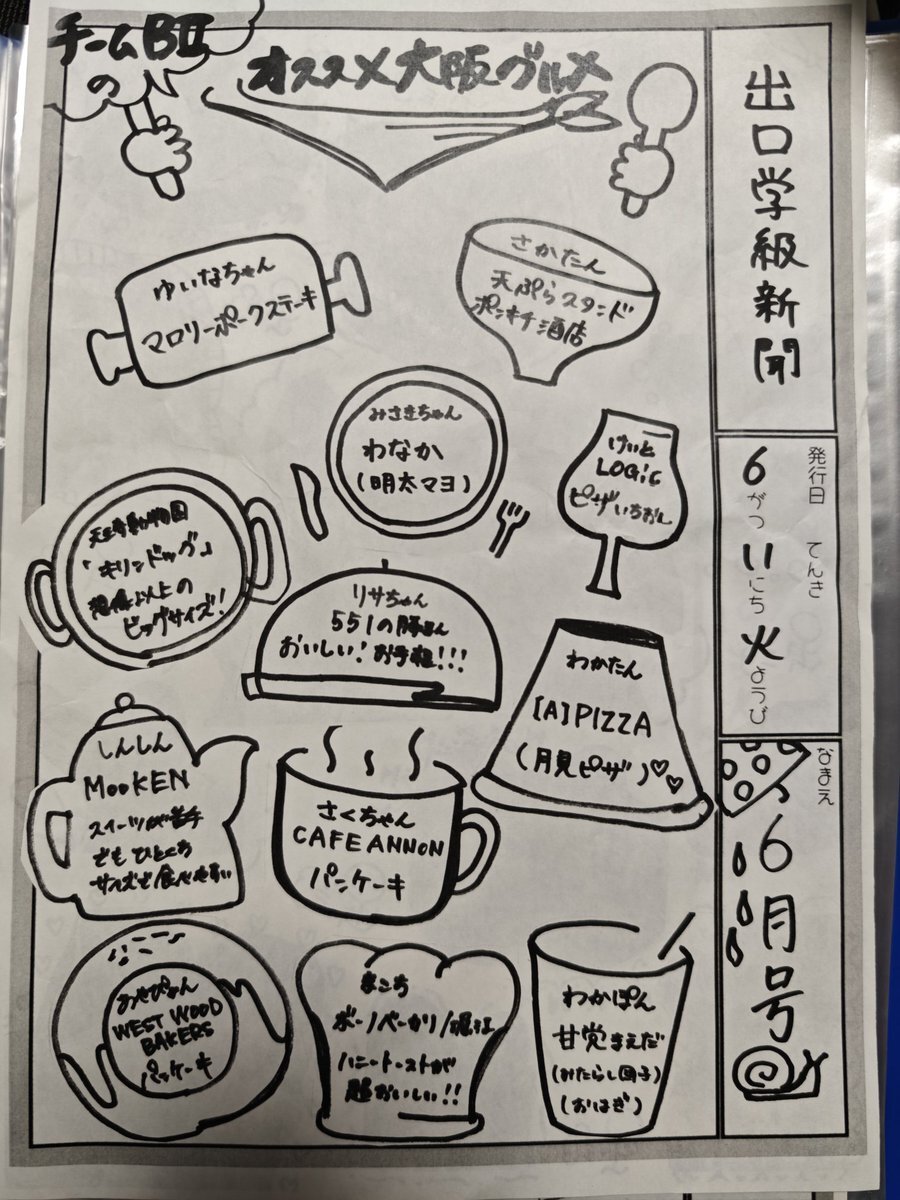 チームBⅡ
の
オススメ大阪グルメ
出口学級新聞
発行日
てんき
6がつ11にち火ようび
なまえ
6月号
ゆいなちゃん
マロリーポークステーキ
さかたん
天ぷらスタンド
ポンキチ酒店
みさきちゃん
わなか
(明太マヨ)
けいと
LOGiC
ピザいちおし
天王寺動物園
「キリンドッグ」
想像以上の
ビッグサイズ!
リサちゃん
551の豚まん
おいしい!お手軽!!!
わかたん
[A]PIZZA
(月見ピザ)♡♡
しんしん
MooKEN
スイーツが苦手
でもひとくち
サイズで食べやすい
さくちゃん
CAFE ANNON
パンケーキ
おぜぴょん
WEST WOOD
BAKERS
パンケーキ
まこち
ボーノベーカリー/堀江
ハニートーストが
超おいしい!!
わかぽん
甘党まえだ
(みたらし団子)
(おはぎ)